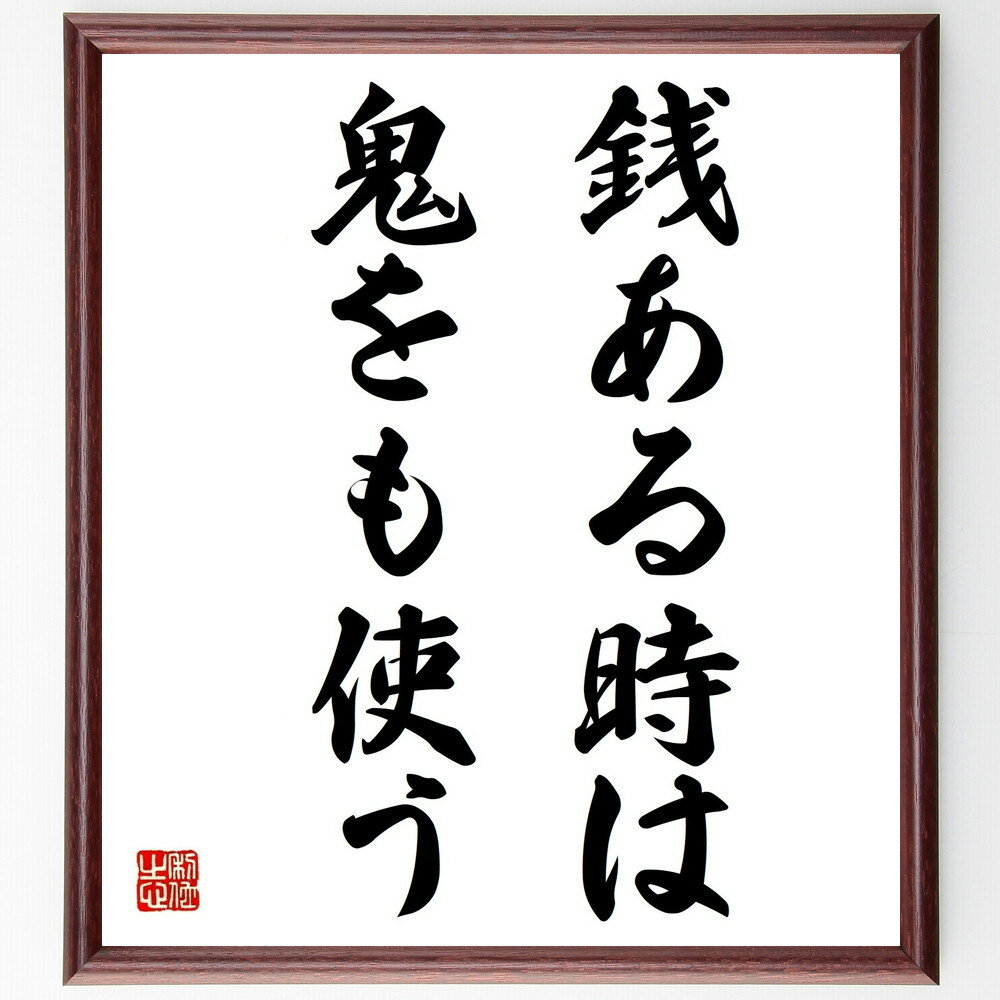 銭ある時は
鬼をも使う